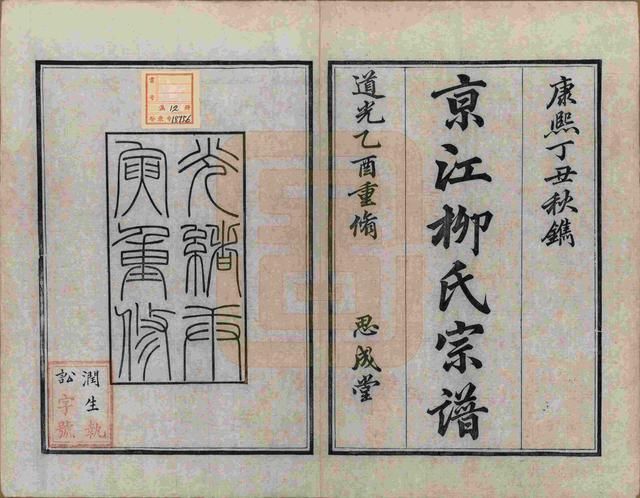 康熙丁丑秋鐫
京江柳氏宗譜
道光乙酉重脩 思成堂
光緒庚
寅重修
12
18756
潤生執
訟字號